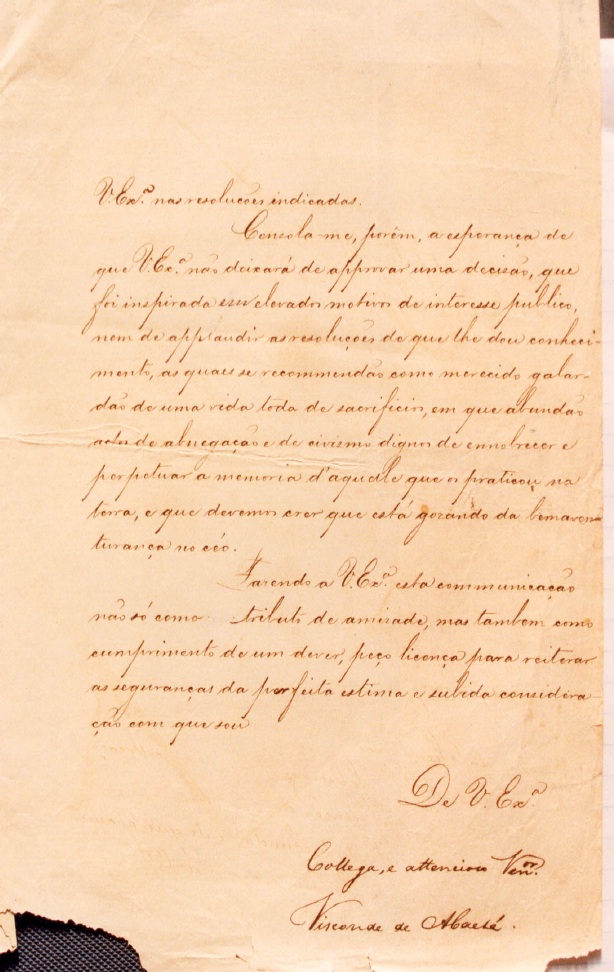 V. Ex.ª nas resoluções indicadas.
Consola-me, porém, a esperança de
que V. Ex.ª não deixará de approvar uma decisão, que
foi inspirada em elevados motivos de interesse publico,
nem de applaudir as resoluções de que lhe dou conheci-
mento, as quaes se recommendão como merecido galar-
dão de uma vida toda de sacrificios, em que abundão
actos de abnegação e de civismo dignos de ennobrecer e
perpetuar a memoria d'aquelle que os praticou na
terra, e que devemos crer que está gozando da bemaven-
turança no céo.
Fazendo a V. Ex.ª esta communicação
não só como tributo de amizade, mas tambem como
cumprimento de um dever, peço licença para reiterar
as seguranças da perfeita estima e subida considera-
ção com que sou
De V. Ex.ª
Collega, e attencioso Ven.or
Visconde de Abaeté.